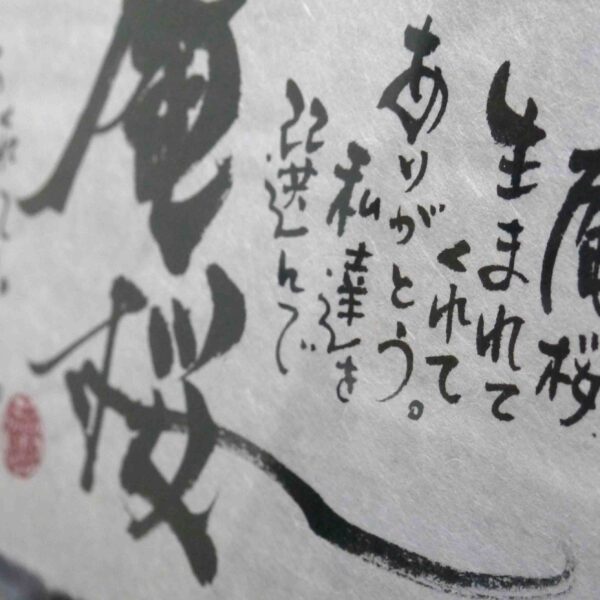 庵桜
生まれて
くれて
ありがとう。
私達を
選んで
庵桜